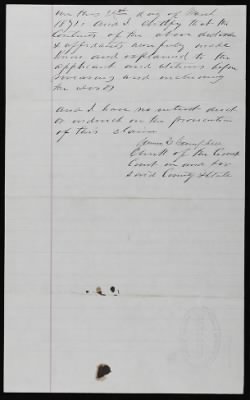 me this day of
1871 and I certify that the
contents of the above declaration
& affidavits were fully made
know and explained to the
applicant and witness before
swearing and including
the words
and I have no interest direct
or indirect in the prosecution
of this claim
James
Clerk of the
Court in and for
said County & State